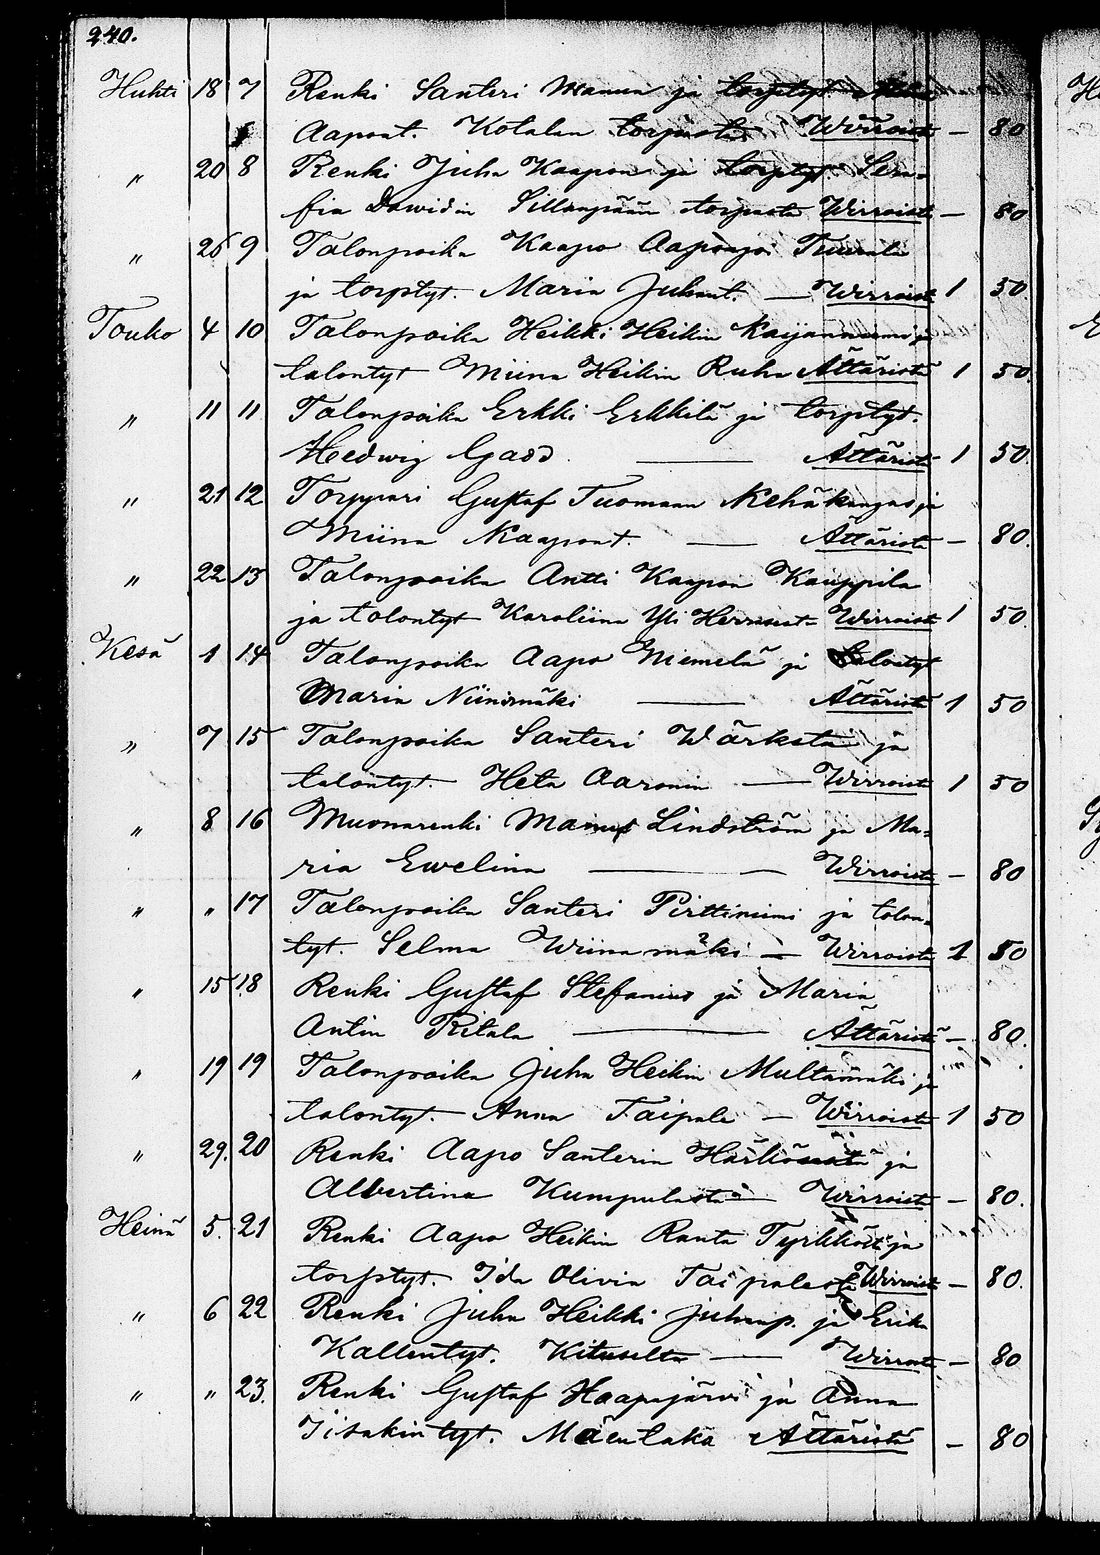 240.
Huhti 18 7 Renki Santeri Manun ja torptyt
Aapont. Kotalan torpasta Wirroista — 80
" 20 8 Renki Juha Kaapon ja torptyt. Sera-
fia Dawidin Sillanpään torpasta Wirroista — 80
" 26 9 Talonpoika Kaapo Aaponpoi Tuurala
ja torptyt. Maria Juhant. — Wirroista 1 50
Touko 4 10 Talonpoika Heikki Heikin Kaijanniemi ja
talontyt Miina Heikin Ruha Ättäristä 1 50
" 11 11 Talonpoika Erkki Erkkilä ja torptyt.
Hedwig Gadd — Ättäristä 1 50
" 21 12 Torppari Gustaf Tuomaan Kehäkangas ja
Miina Kaapont. — Ättäristä — 80.
" 22 13 Talonpoika Antti Kaapon Kauppila
ja talontyt Karoliina Yli Herranst Wirroista 1 50
Kesä 1 14 Talonpoika Aapo Niemelä ja talontyt
Maria Niinimäki — Ättäristä 1 50
" 7 15 Talonpoika Santeri Wärksta ja
talontyt. Heta Aaronin — Wirroista 1 50
" 8 16 Muonarenki Manus Lindström ja Ma-
ria Ewelina — — Wirroista — 80
" " 17 Talonpoika Santeri Pirttiniemi ja talon-
tyt. Selma Wiinamäki — Wirroista 1 50
" 15 18 Renki Gustaf Stefanius ja Maria
Antin Ritala — Ättäristä — 80.
" 19 19 Talonpoika Juha Heikin Multamäki ja
talontyt. Anna Taipale — Wirroista 1 50
" 29. 20 Renki Aapo Santerin Härkösestä ja
Albertina Kumpulasta — Wirroista — 80.
Heinä 5. 21 Renki Aapo Heikin Ranta Tyrkköstä ja
torptyt. Ida Olivia Taipaleesta Wirroista — 80.
" 6 22 Renki Juha Heikki Juhanp. ja Erika
Kallentyt. Kituselta — Wirroista — 80
" " 23. Renki Gustaf Haapajärvi ja Anna
Iisakintyt. Mäenlaka Ättäristä — 80